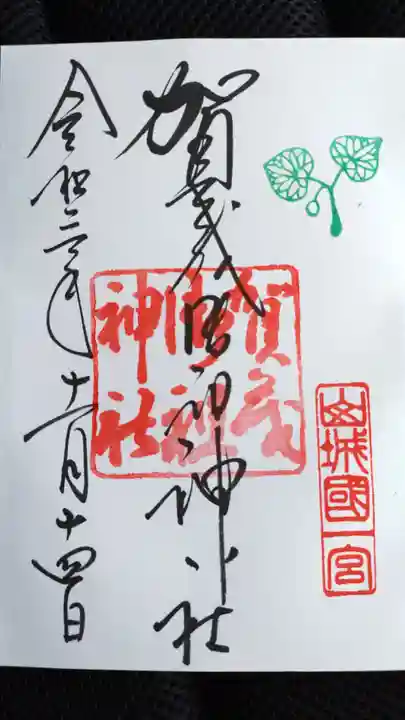 山城國一宮
賀茂御祖神社
賀茂
御祖
神社
令和三年十一月十四日